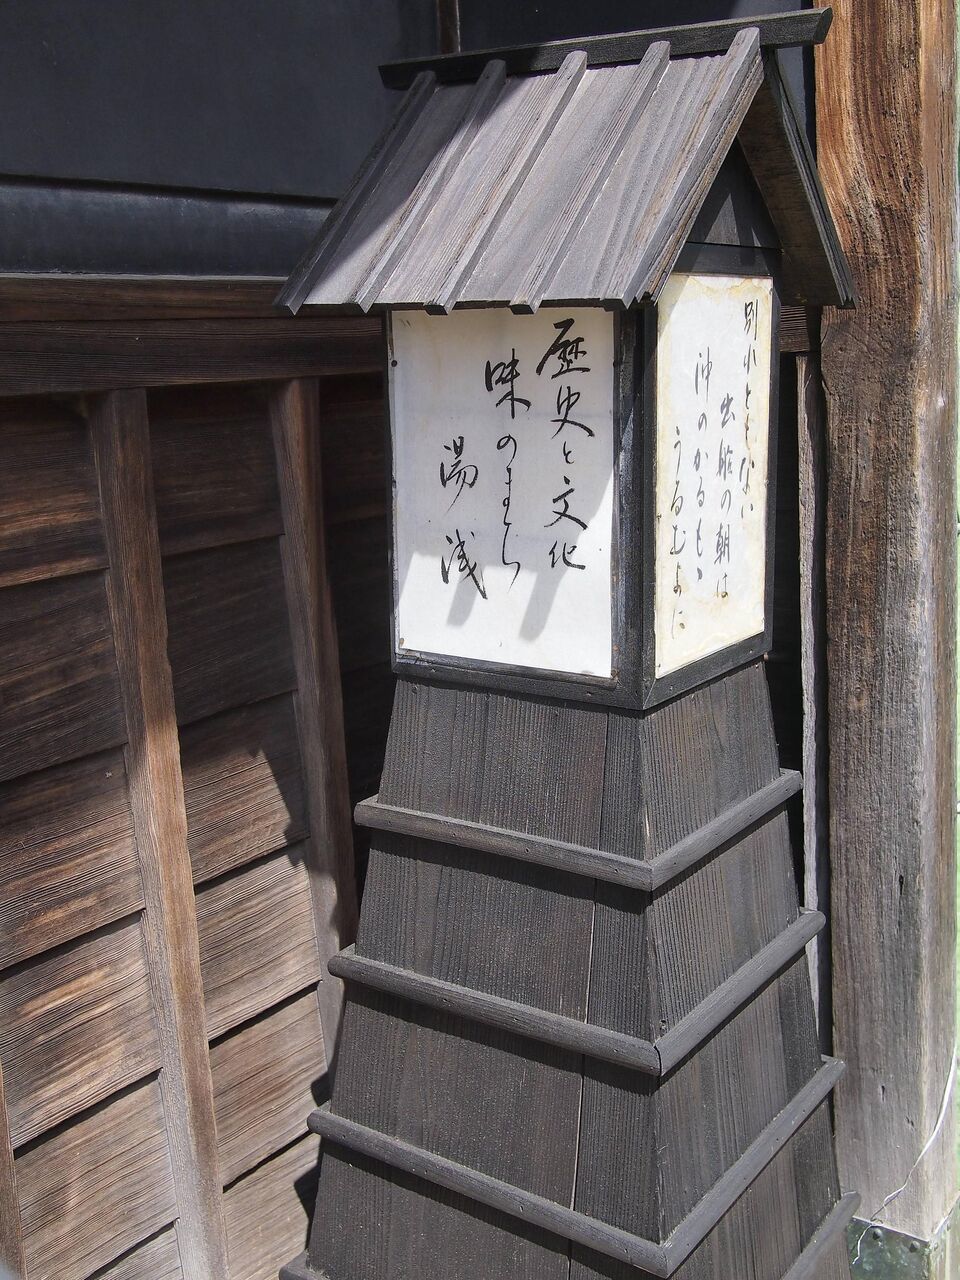 歴史と文化
味のまち
湯浅
別れともない
出船の朝は
沖のかもゝ
うるむよに